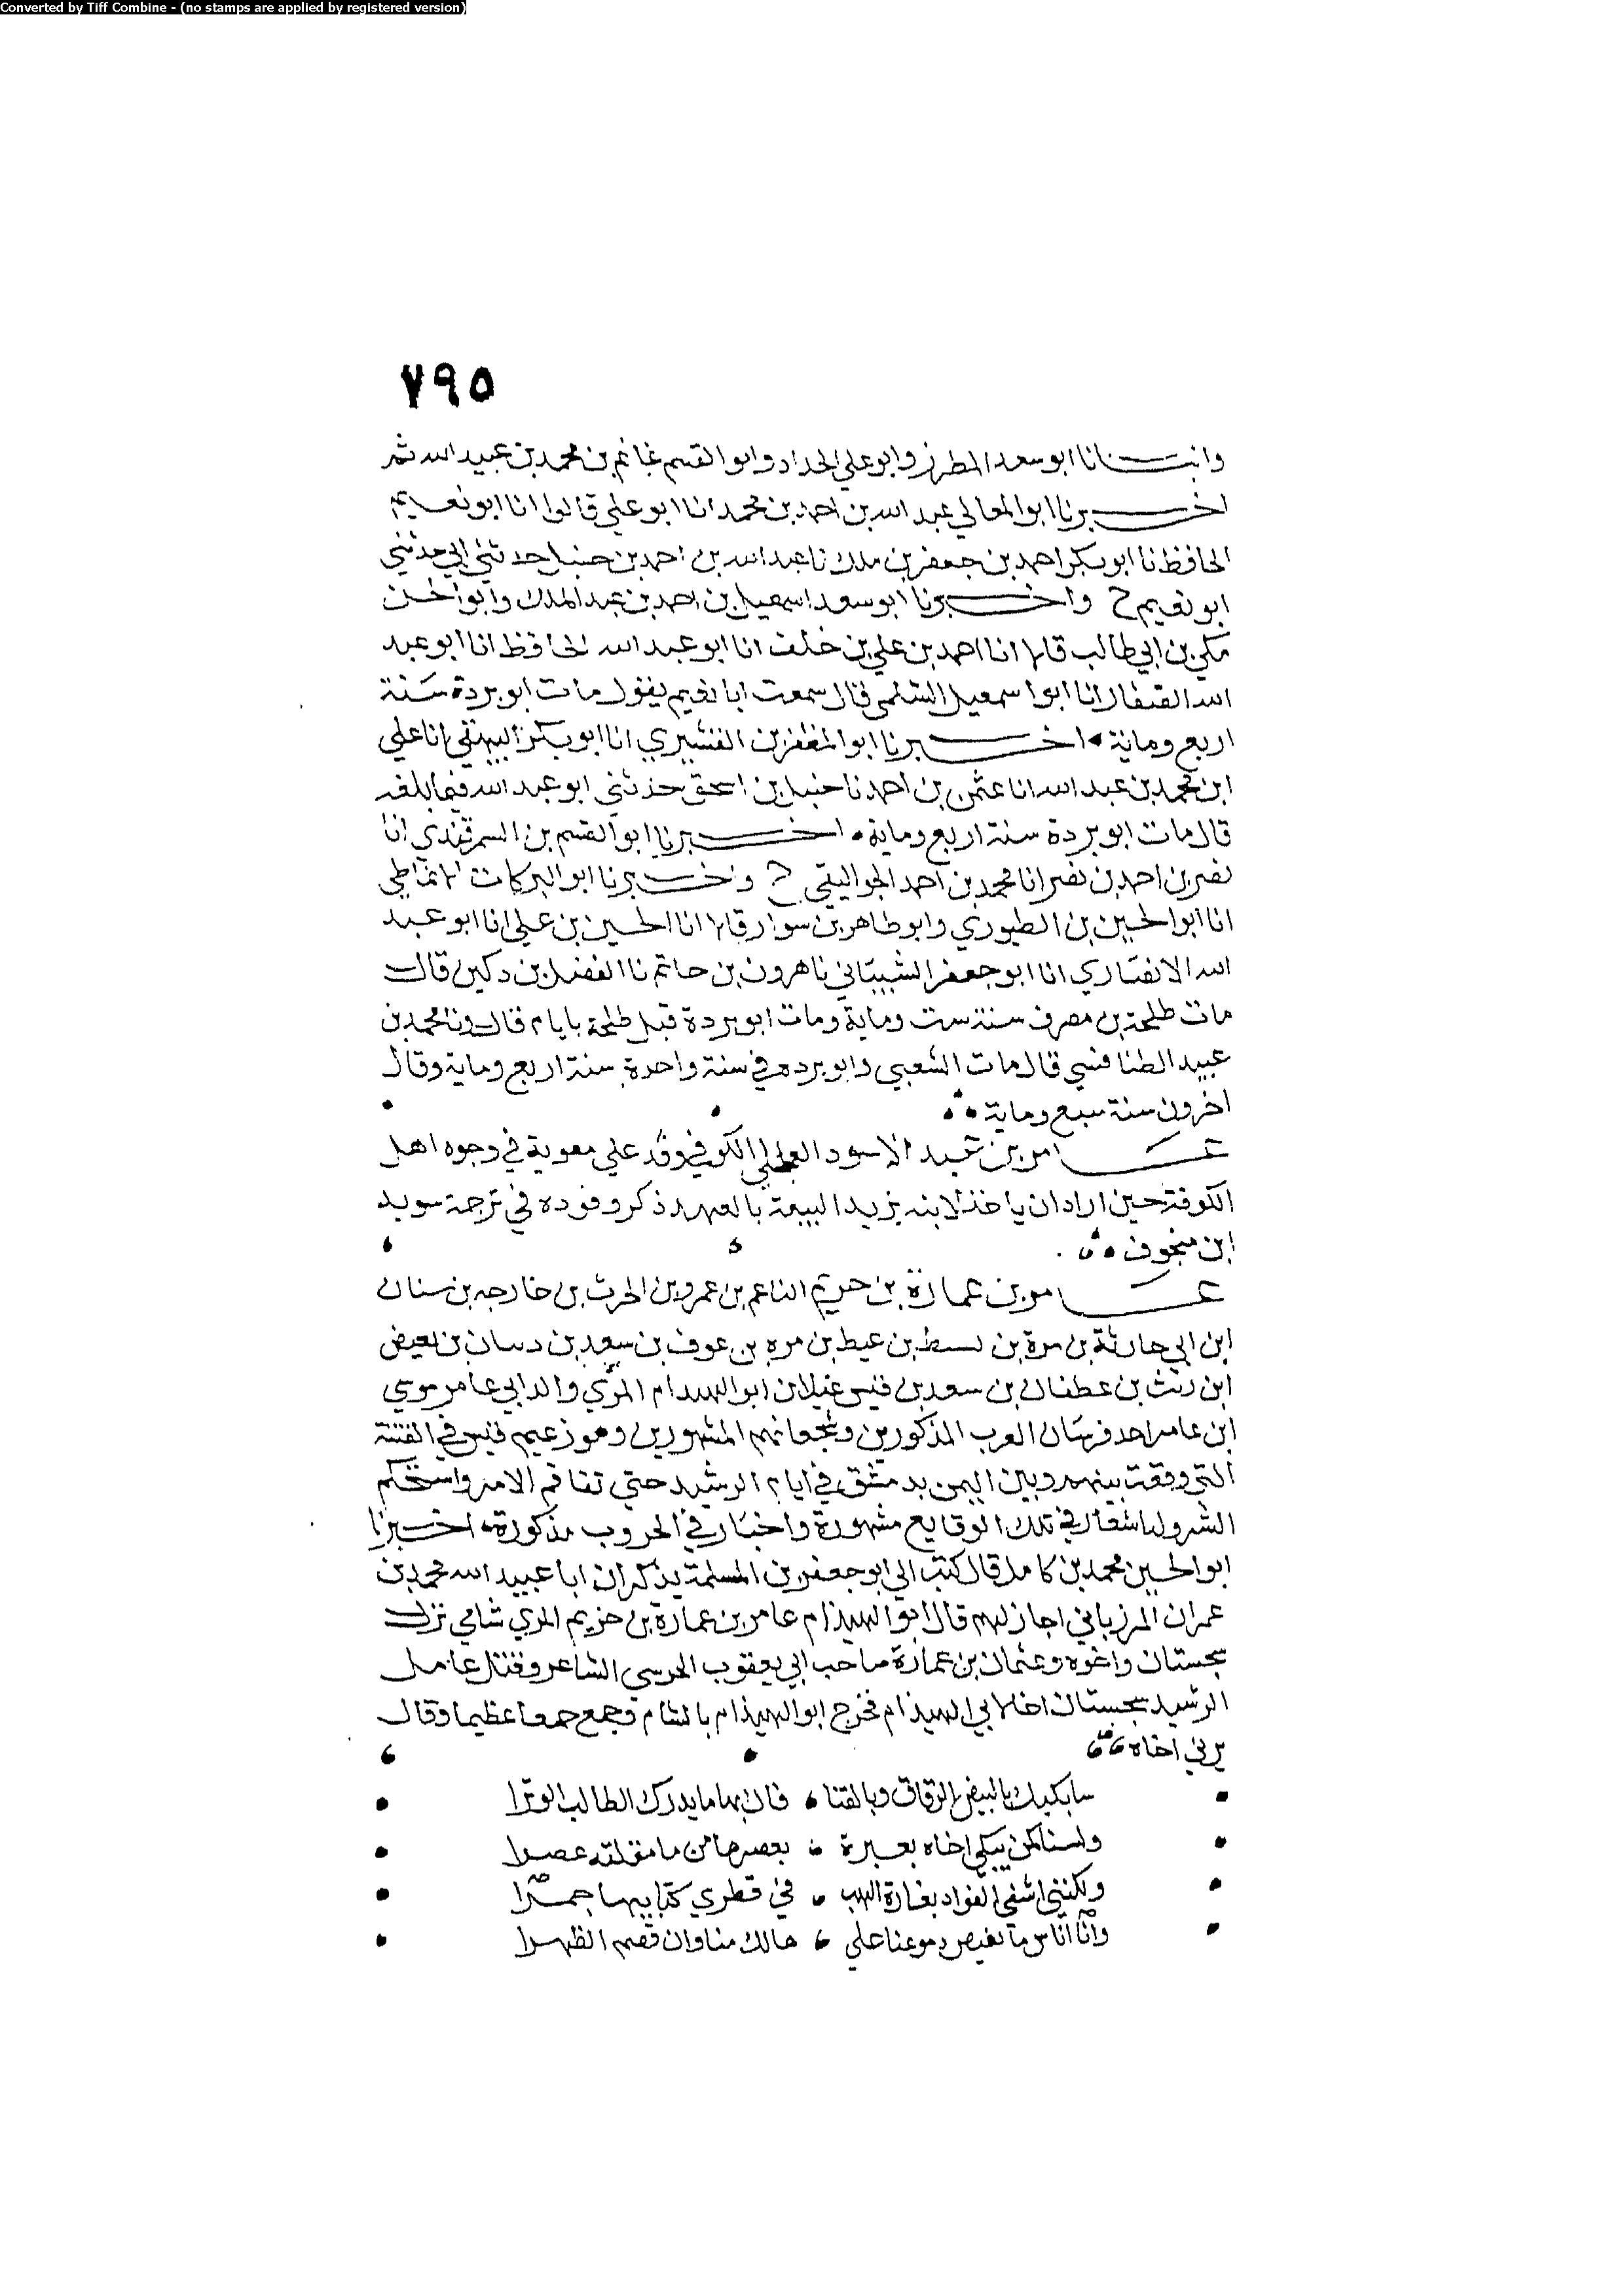 Converted by Tiff Combine - (no stamps are applied by registered version)
٧٩٥
وانبـــانا ابو سعد المطرز وابو علي الحداد وابو القسم غانم بن محمد بن عبيد الله ثم
اخـــبرنا ابو المعالي عبد الله بن احمد بن محمد انا ابو علي قالوا انا ابو نعيم
الحافظ نا ابو بكر احمد بن جعفر بن ملك نا عبد الله بن احمد بن حنبل حدثني ابي حدثني
ابو نعيم ح واخـــبرنا ابو سعد اسمعيل بن احمد بن عبد الملك وابو الحسن
مكي بن ابي طالب قالا انا احمد بن علي بن خلف انا ابو عبد الله الحافظ انا ابو عبد
الله الصفار انا ابو اسمعيل السلمي قال سمعت ابا نعيم يقول مات ابو بردة سنة
اربع ومائة اخـــبرنا ابو المظفر بن القشيري انا ابو بكر البيهقي انا علي
ابن محمد بن عبد الله انا عثمن بن احمد نا حنبل بن اسحق حدثني ابو عبد الله فيما بلغه
قال مات ابو بردة سنة اربع وماية اخـــبرنا ابو القسم بن السمرقندي انا
نصر بن احمد بن نصر انا محمد بن احمد الجواليقي ح واخـــبرنا ابو البركات الانماطي
انا ابو الحسين بن الطيوري وابو طاهر بن سوار قالا انا الحسين بن علي انا ابو عبد
الله الانصاري انا ابو جعفر الشيباني نا هرون بن حاتم نا الفضل بن دكين قال
مات طلحة بن مصرف سنة ست وماية ومات ابو بردة قبل طلحة بايام قال ونا محمد بن
عبيد الطنافسي قال مات الشعبي وابو برده في سنة واحدة سنة اربع وماية وقال
اخرون سنة سبع وماية
عـــامر بن عبد الاسود العجلي الكوفي وفد علي معوية في وجوه اهل
الكوفة حين اراد ان ياخذ لابنه يزيد البيعة بالعهد ذكر وفوده في ترجمة سويد
ابن منجوف
عـــامر بن عمارة بن خريم الناعم بن عمرو بن الحرث بن خارجه بن سنان
ابن ابي حارثة بن مرة بن نسبط بن غيط بن مره بن عوف بن سعد بن دبيان بن بغيض
ابن ريث بن غطفان بن سعد بن قيس غيلان ابو الهيدام المري والد ابي عامر موسي
ابن عامر احد فرسان العرب المذكورين وشجعانهم المشهورين وهو زعيم قيس في الفتنة
التي وقعت بينهم وبين اليمن بدمشق في ايام الرشيد حتي تفاقم الامر واستحكم
الشر وله اشعار في تلك الوقايع مشهورة واخبار في الحروب مذكورة اخـــبرنا
ابو الحسين محمد بن كامل قال كتب الي ابو جعفر بن المسلمة يذكر ان ابا عبيد الله محمد بن
عمران المرزباني اجاز لهم قال ابو الهيذام عامر بن عمارة بن خريم المري شامي نزل
سجستان واخوه وعثمان بن عمارة صاحب ابي يعقوب الخرسي الشاعر وقتل عامل
الرشيد بسجستان اخا لابي الهيذام فخرج ابو الهيذام بالشام وجمع جمعا عظيما وقال
يرثي اخاه
سابكيك بالبيض الرقاق وبالقنا فان بها ما يدرك الطالب الوترا
ولسنا كمن يبكي اخاه بعبرة يعصرها من ما مقلته عصرا
ولكنني اشفي الفواد بغارة الهب في قطري كتايبها جمرا
وانا اناس ما تفيض دموعنا علي هالك منا وان قصم الظهرا